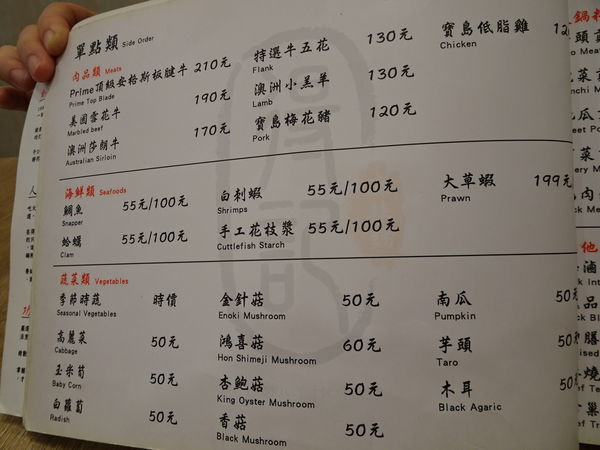 單點類 Side Order
肉品類 Meats
Prime頂級安格斯板腱牛 210元
Prime Top Blade
美國雪花牛 190元
Marbled beef
澳洲莎朗牛 170元
Australian Sirloin
特選牛五花 130元
Flank
澳洲小羔羊 130元
Lamb
寶島梅花豬 120元
Pork
寶島低脂雞
Chicken
海鮮類 Seafoods
鯛魚 55元/100元
Snapper
蛤蠣 55元/100元
Clam
白刺蝦 55元/100元
Shrimps
手工花枝漿 55元/100元
Cuttlefish Starch
大草蝦 199元
Prawn
蔬菜類 Vegetables
季節時蔬 時價
Seasonal Vegetables
高麗菜 50元
Cabbage
玉米筍 50元
Baby Corn
白蘿蔔 50元
Radish
金針菇 50元
Enoki Mushroom
鴻喜菇 60元
Hon Shimeji Mushroom
杏鮑菇 50元
King Oyster Mushroom
香菇 50元
Black Mushroom
南瓜 50
Pumpkin
芋頭 50
Taro
木耳 50
Black Agaric